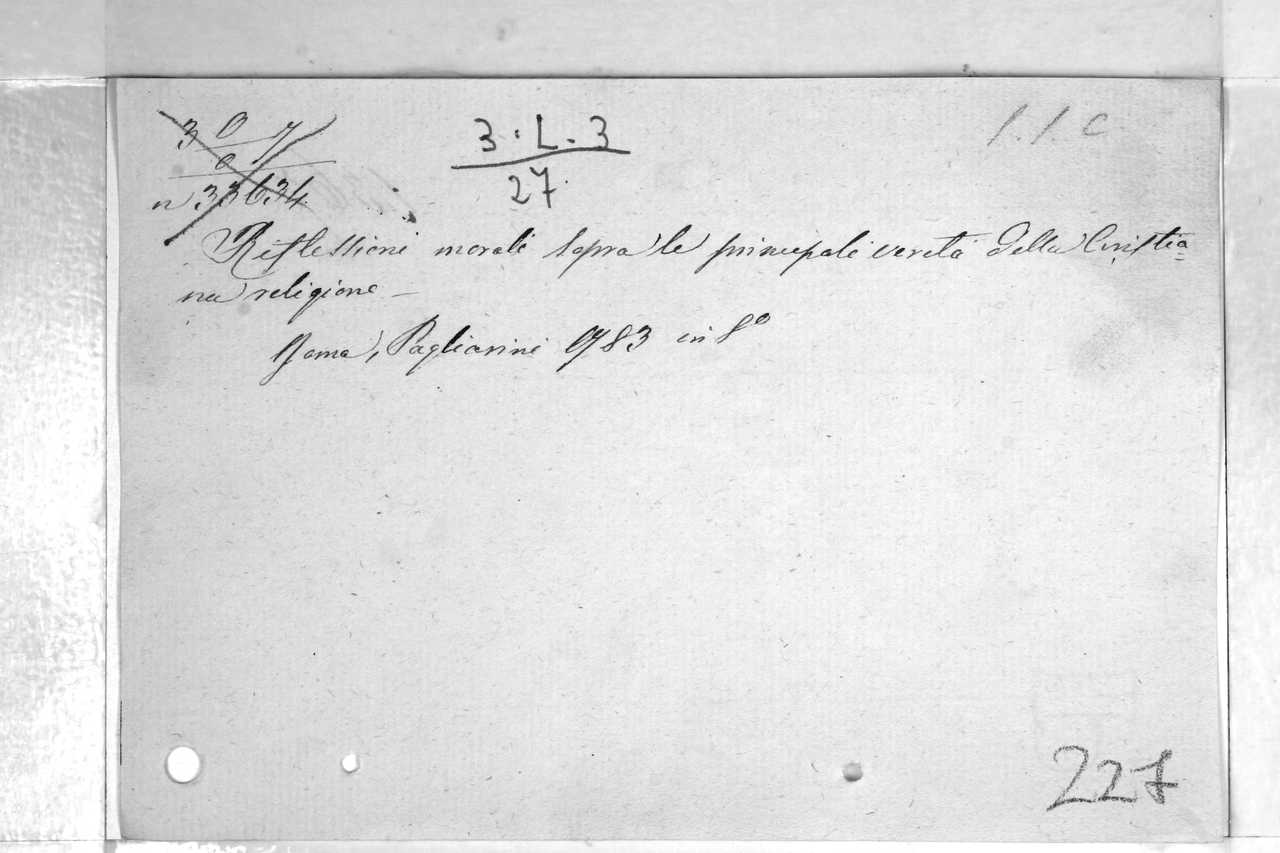 3 · L . 3
27
n 33634
Riflessioni morali sopra le principali verità della Cristia=
na religione –
Roma, Pagliarini 1783 in 8º
227